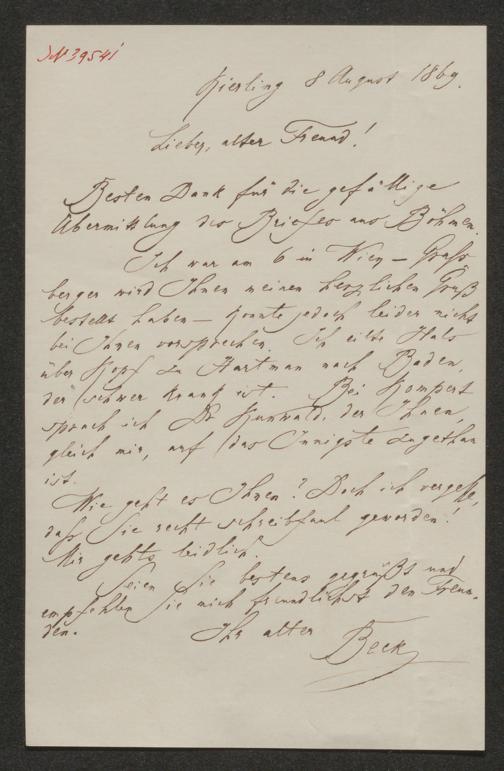 N 39541
Kierling 8 August 1869.
Lieber, alter Freund!
Besten Dank für die gefällige
Übermittlung des Briefes aus Böhmen.
Ich war am 6 in Wien – Gräss
berger wird Ihnen meinen herzlichen Gruß
bestellt haben – konnte jedoch leider nicht
bei Ihnen vorsprechen. Ich eilte Hals
über Kopf zu Hartman nach Baden,
der schwer krank ist. Bei Kompert
sprach ich Dr Kunwald, der Ihnen,
gleich mir, auf das Innigste zugethan
ist.
Wie geht es Ihnen? Doch ich vergesse,
daß Sie recht schreibfaul geworden!
Mir gehts leidlich.
Seien Sie bestens gegrüßt und
empfehlen Sie mich freundlichst den Freun-
den.
Ihr alter Beck